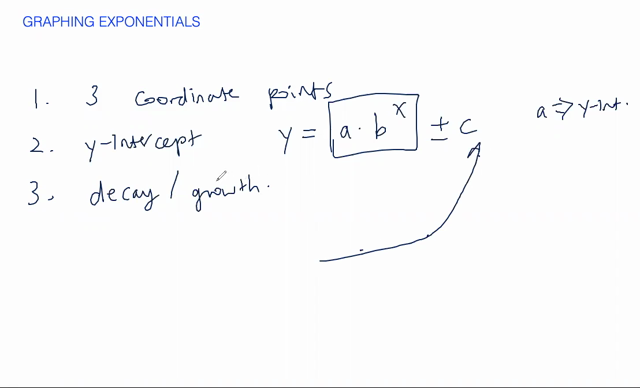 GRAPHING EXPONENTIALS
1. 3 coordinate points
2. y-intercept
3. decay / growth.
y = a · b^x ± c
a => y-int.